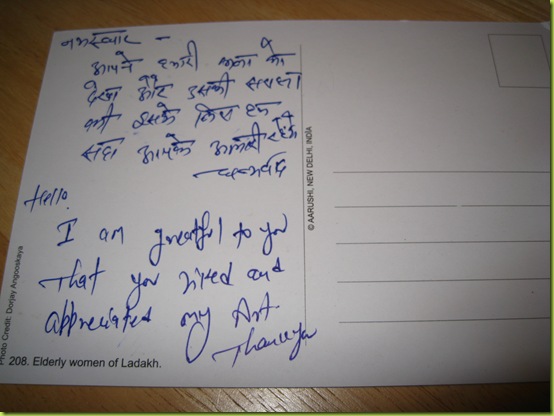 नमस्कार -
आपने हमारी कला को
देखा और उसकी सराहना
की इसके लिए हम
सदा आपके आभारी रहेंगे
धन्यवाद
Hello
I am greatful to you
That you and
appreciated my Art
Thankyou
208. Elderly women of Ladakh.
Photo Credit: Dorjay Angooskaya
© AARUSHI, NEW DELHI, INDIA